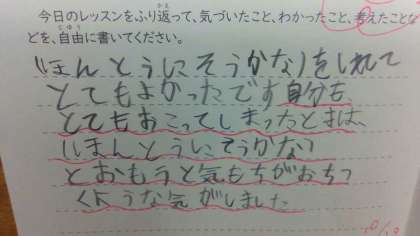 今日のレッスンをふり返って、気づいたこと、わかったこと、考えたことな
どを、自由に書いてください。
(ほんとうにそうかな)をしれて
とてもよかったです自分も、
とてもおこってしまったときは、
(ほんとうにそうかな)
とおもうと気もちがおちつ
くような気がしました